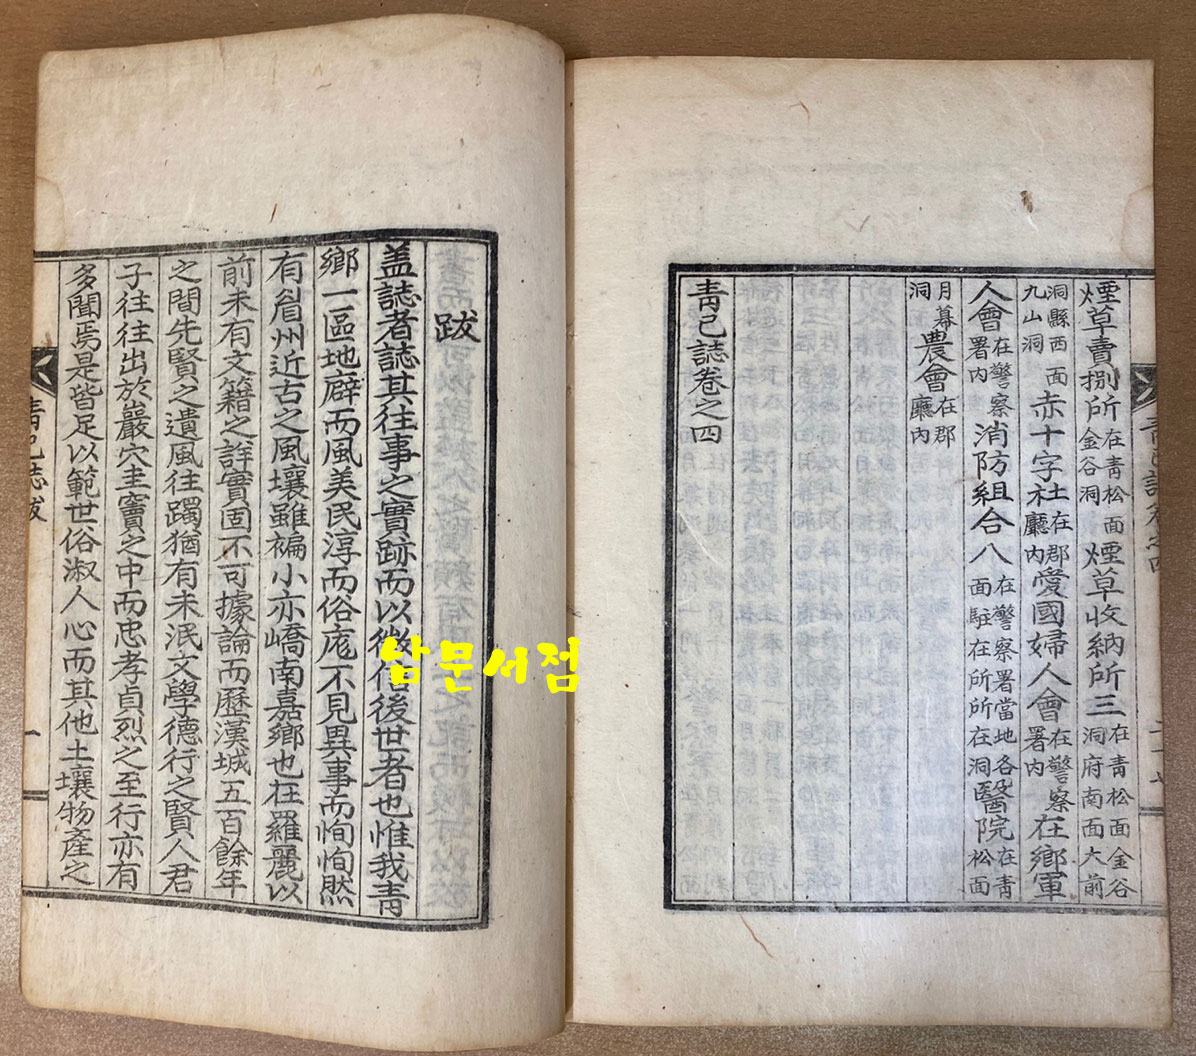 煙草賣捌所在靑松面金谷洞煙草收納所三在靑松面金谷洞府南面大前
洞縣西面九山洞赤十字社在郡廳內愛國婦人會在警察署內在鄕軍
人會在警察署內消防組合八在警察署當地各面駐在所所在洞醫院在靑松面
月幕洞農會在郡廳內
靑己誌卷之四
跋
盖誌者誌其往事之實跡而以徵信後世者也惟我靑
鄕一區地辟而風美民淳而俗庬不見異事而恂恂然
有眉州近古之風壤雖褊小亦嶠南嘉鄕也在羅麗以
前未有文籍之詳實固不可據論而歷漢城五百餘年
之間先賢之遺風往躅猶有未泯文學德行之賢人君
子往往出於巖穴圭竇之中而忠孝貞烈之至行亦有
多聞焉是皆足以範世俗淑人心而其他土壤物產之
靑己誌跋 一
남문서점